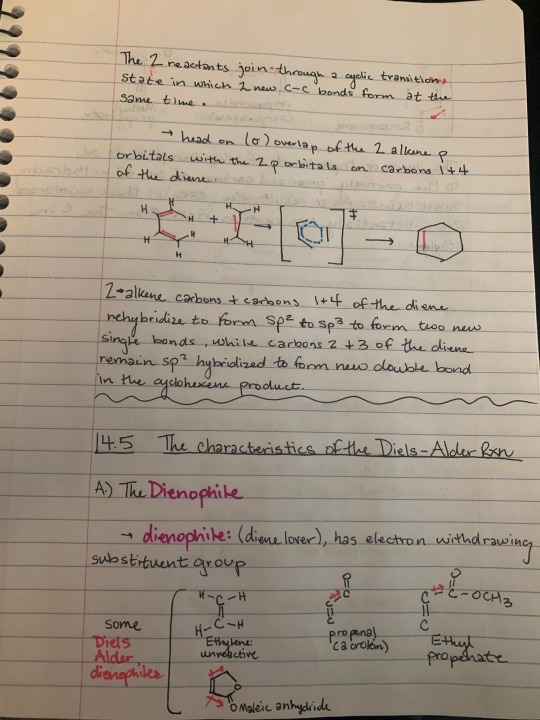 The 2 reactants join through a cyclic transition
state in which 2 new C-C bonds form at the
same time.
→ head on (σ) overlap of the 2 alkene p
orbitals with the 2 p orbitals on carbons 1+4
of the diene
H H H H H H + H H H H → [ ]‡ →
2 alkene carbons + carbons 1+4 of the diene
rehybridize to form sp² to sp³ to form two new
single bonds, while carbons 2 + 3 of the diene
remain sp² hybridized to form new double bond
in the cyclohexene product.
14.5 The characteristics of the Diels-Alder Rxn
A.) The Dienophile
→ dienophile: (diene lover), has electron withdrawing
substituent group
some
Diels
Alder
dienophiles
H-C-H
H-C-H
Ethylene:
unreactive
O
C
C
C
propenal
(acrolein)
O
C C-OCH3
C
Ethyl
propenate
O
O Maleic anhydride